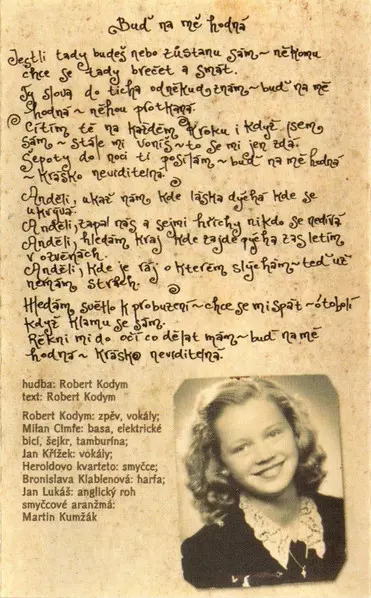 Buď na mě hodná
Jestli tady budeš nebo zůstanu sám ~ někomu
chce se tady brečet a smát.
Ty slova do ticha odněkud znám ~ buď na mě
hodná ~ něhou protkaná.
Cítím tě na každém kroku i když jsem
sám ~ stále mi voníš ~ to se mi jen zdá.
Šepoty do noci ti posílám ~ buď na mě hodná
~ krásko neviditelná.
Anděli, ukaž nám kde láska dýchá kde se
ukrývá.
Anděli, zapal nás a sejmi hříchy nikdo se nedívá
Anděli, hledám kraj kde zajde pýcha zas letím
v ozvěnách.
Anděli, kde je ráj o kterém slýchám ~ teď už
nemám strach.
Hledám světlo k probuzení ~ chce se mi spát ~ to bolí
když klamu se sám.
Řekni mi do očí co dělat mám ~ buď na mě
hodná ~ krásko neviditelná.
hudba: Robert Kodym
text: Robert Kodym
Robert Kodym: zpěv, vokály;
Milan Cimfe: basa, elektrické
bicí, šejkr, tamburína;
Jan Křížek: vokály;
Heroldovo kvarteto: smyčce;
Bronislava Klablenová: harfa;
Jan Lukáš: anglický roh
smyčcové aranžmá:
Martin Kumžák